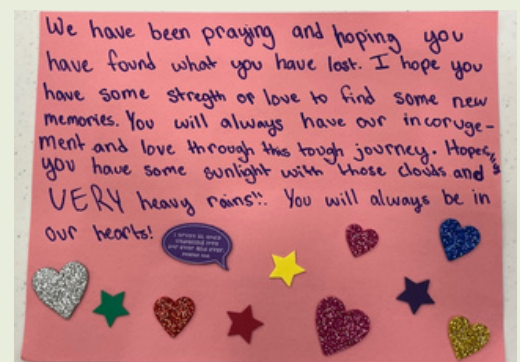 We have been praying and hoping you
have found what you have lost. I hope you
have some stregth or love to find some new
memories. You will always have our incoruge-
ment and love through this tough journey. Hopefully
you have some sunlight with those clouds and
VERY heavy rains!! You will always be in
our hearts!